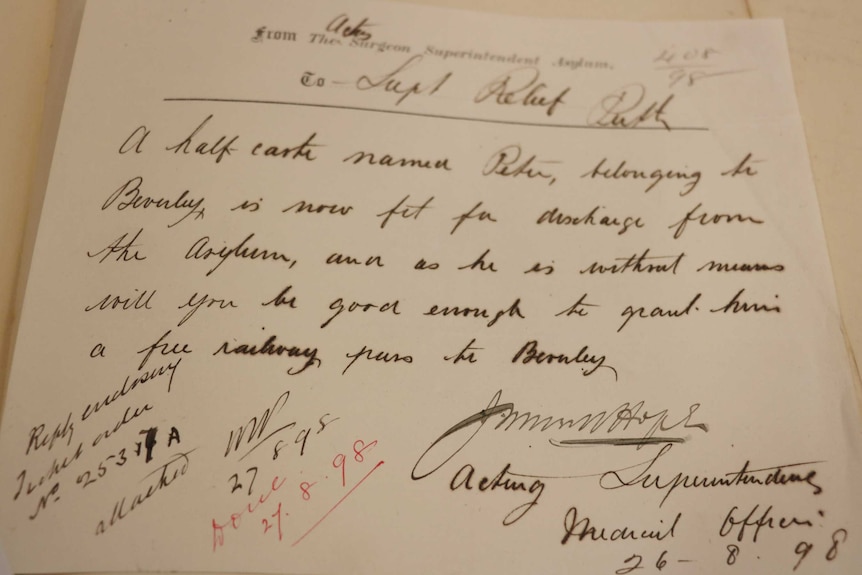 From The Actg Surgeon Superintendent Asylum.
408
98
To - Supt Relief Perth
A half-caste named Peter, belonging to
Beverley, is now fit for discharge from
the Asylum, and as he is without means
will you be good enough to grant him
a free railway pass to Beverley
Acting Superintendent
Medical Officer
26 - 8. 98
Reply enclosing
Ticket order
No 2537 A
attached
27 8 98
Done
27. 8. 98